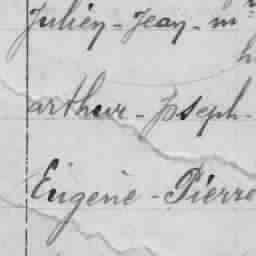 Julien - Jean - m
arthur - Joseph -
Eugène - Pierre